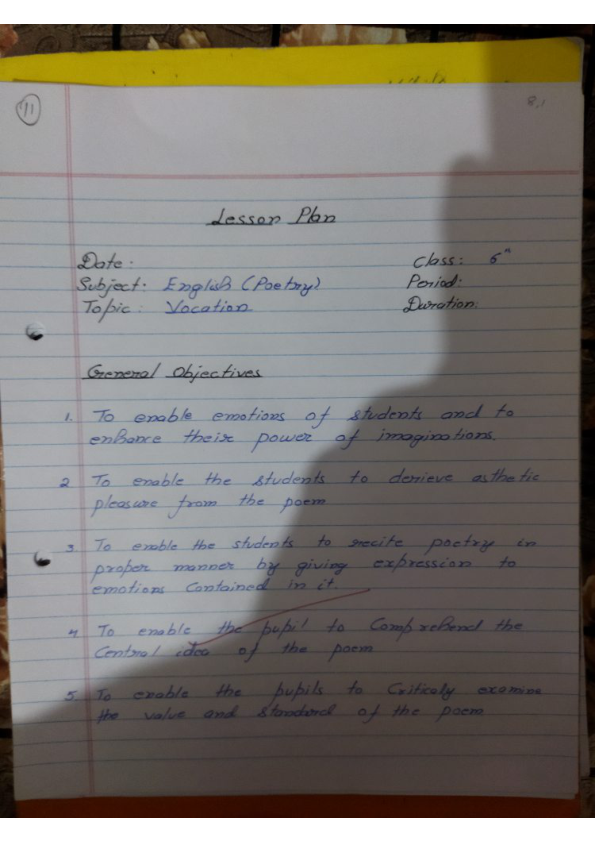 11
8,1
Lesson Plan
Date: Class: 6th
Subject: English (Poetry) Period:
Topic: Vocation Duration:
General Objectives
1. To enable emotions of students and to
enhance their power of imaginations.
2 To enable the students to derieve asthetic
pleasure from the poem
3. To enable the students to recite poetry in
proper manner by giving expression to
emotions contained in it.
4 To enable the pupil to Comprehend the
Central idea of the poem
5. To enable the pupils to Critically examine
the value and standard of the poem